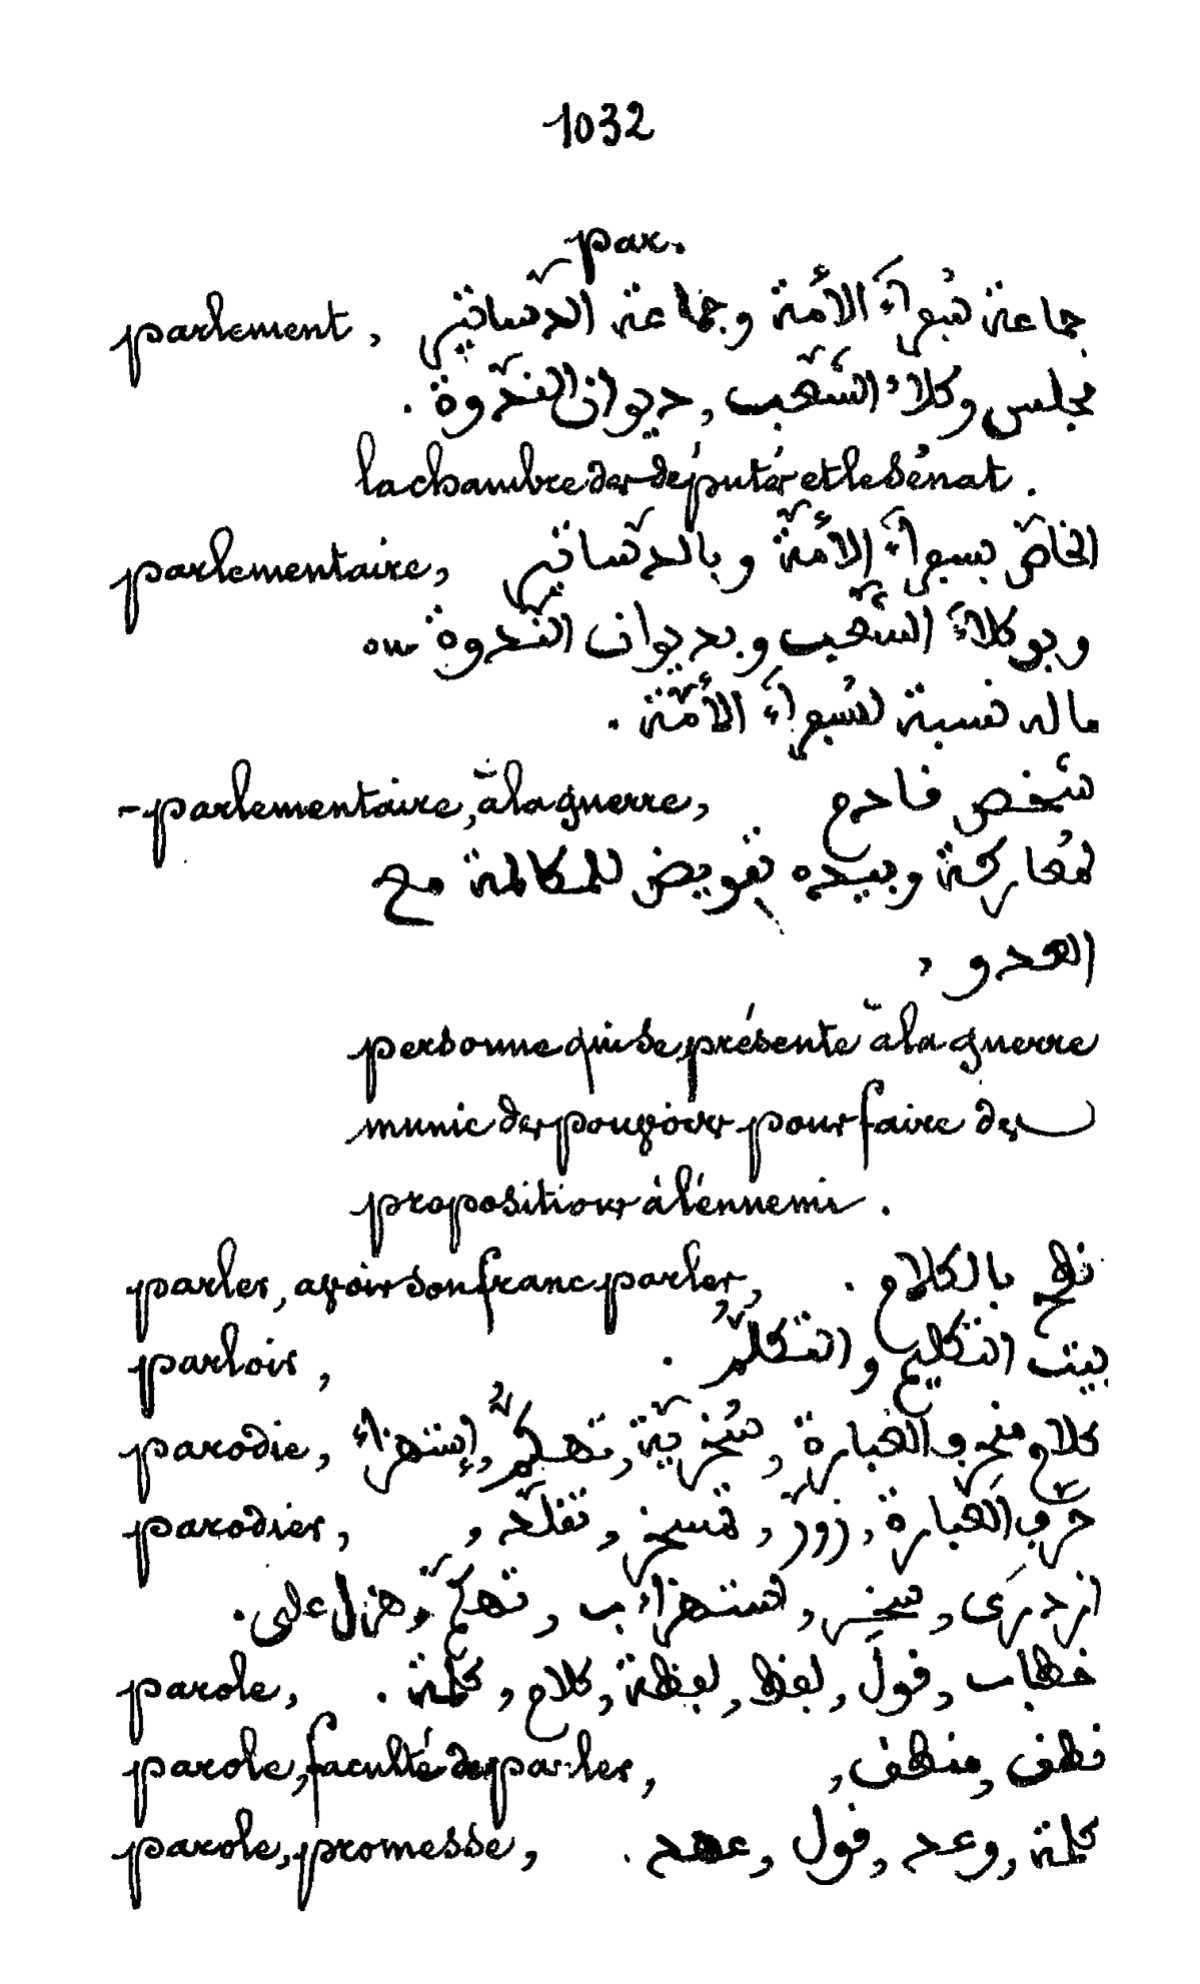 1032
par.
parlement, جماعة سُفراءَ الأُمّة وجماعة الدّساتير
مجلس وكلاءُ الشّعب, ديوان النّدوة.
la chambre des députés et le sénat.
parlementaire, الخاصّ بسفراءَ الأُمّة وبالدّساتير
وبوكلاءَ الشّعب وبديوان النّدوة ou
ماله نسبة لسُفراءَ الأُمّة.
- parlementaire, à la guerre, شخص فادم
لمُعاركة وبيده تفويض للمكالمة مع
العدو,
personne qui se présente à la guerre
munie des pouvoirs pour faire des
propositions à l'ennemi.
parler, avoir son franc parler, بالكلام.
parloir, بيت التكليم والتكلّمُ.
parodie, كلام العبارة, سُخريّة, تهكّم, إستهزاء
parodier, حرّف العبارة, زوّر, تمسخر, تقلّد,
ازدرَى, سخر, استهزاء ب, تهكّم, هزل على.
parole, خطاب, فولَ, لفظ, لفظة, كلام, كلمة.
parole, faculté de parler, نطف, منطف,
parole, promesse, كلمة, وعد, فول, عهد.